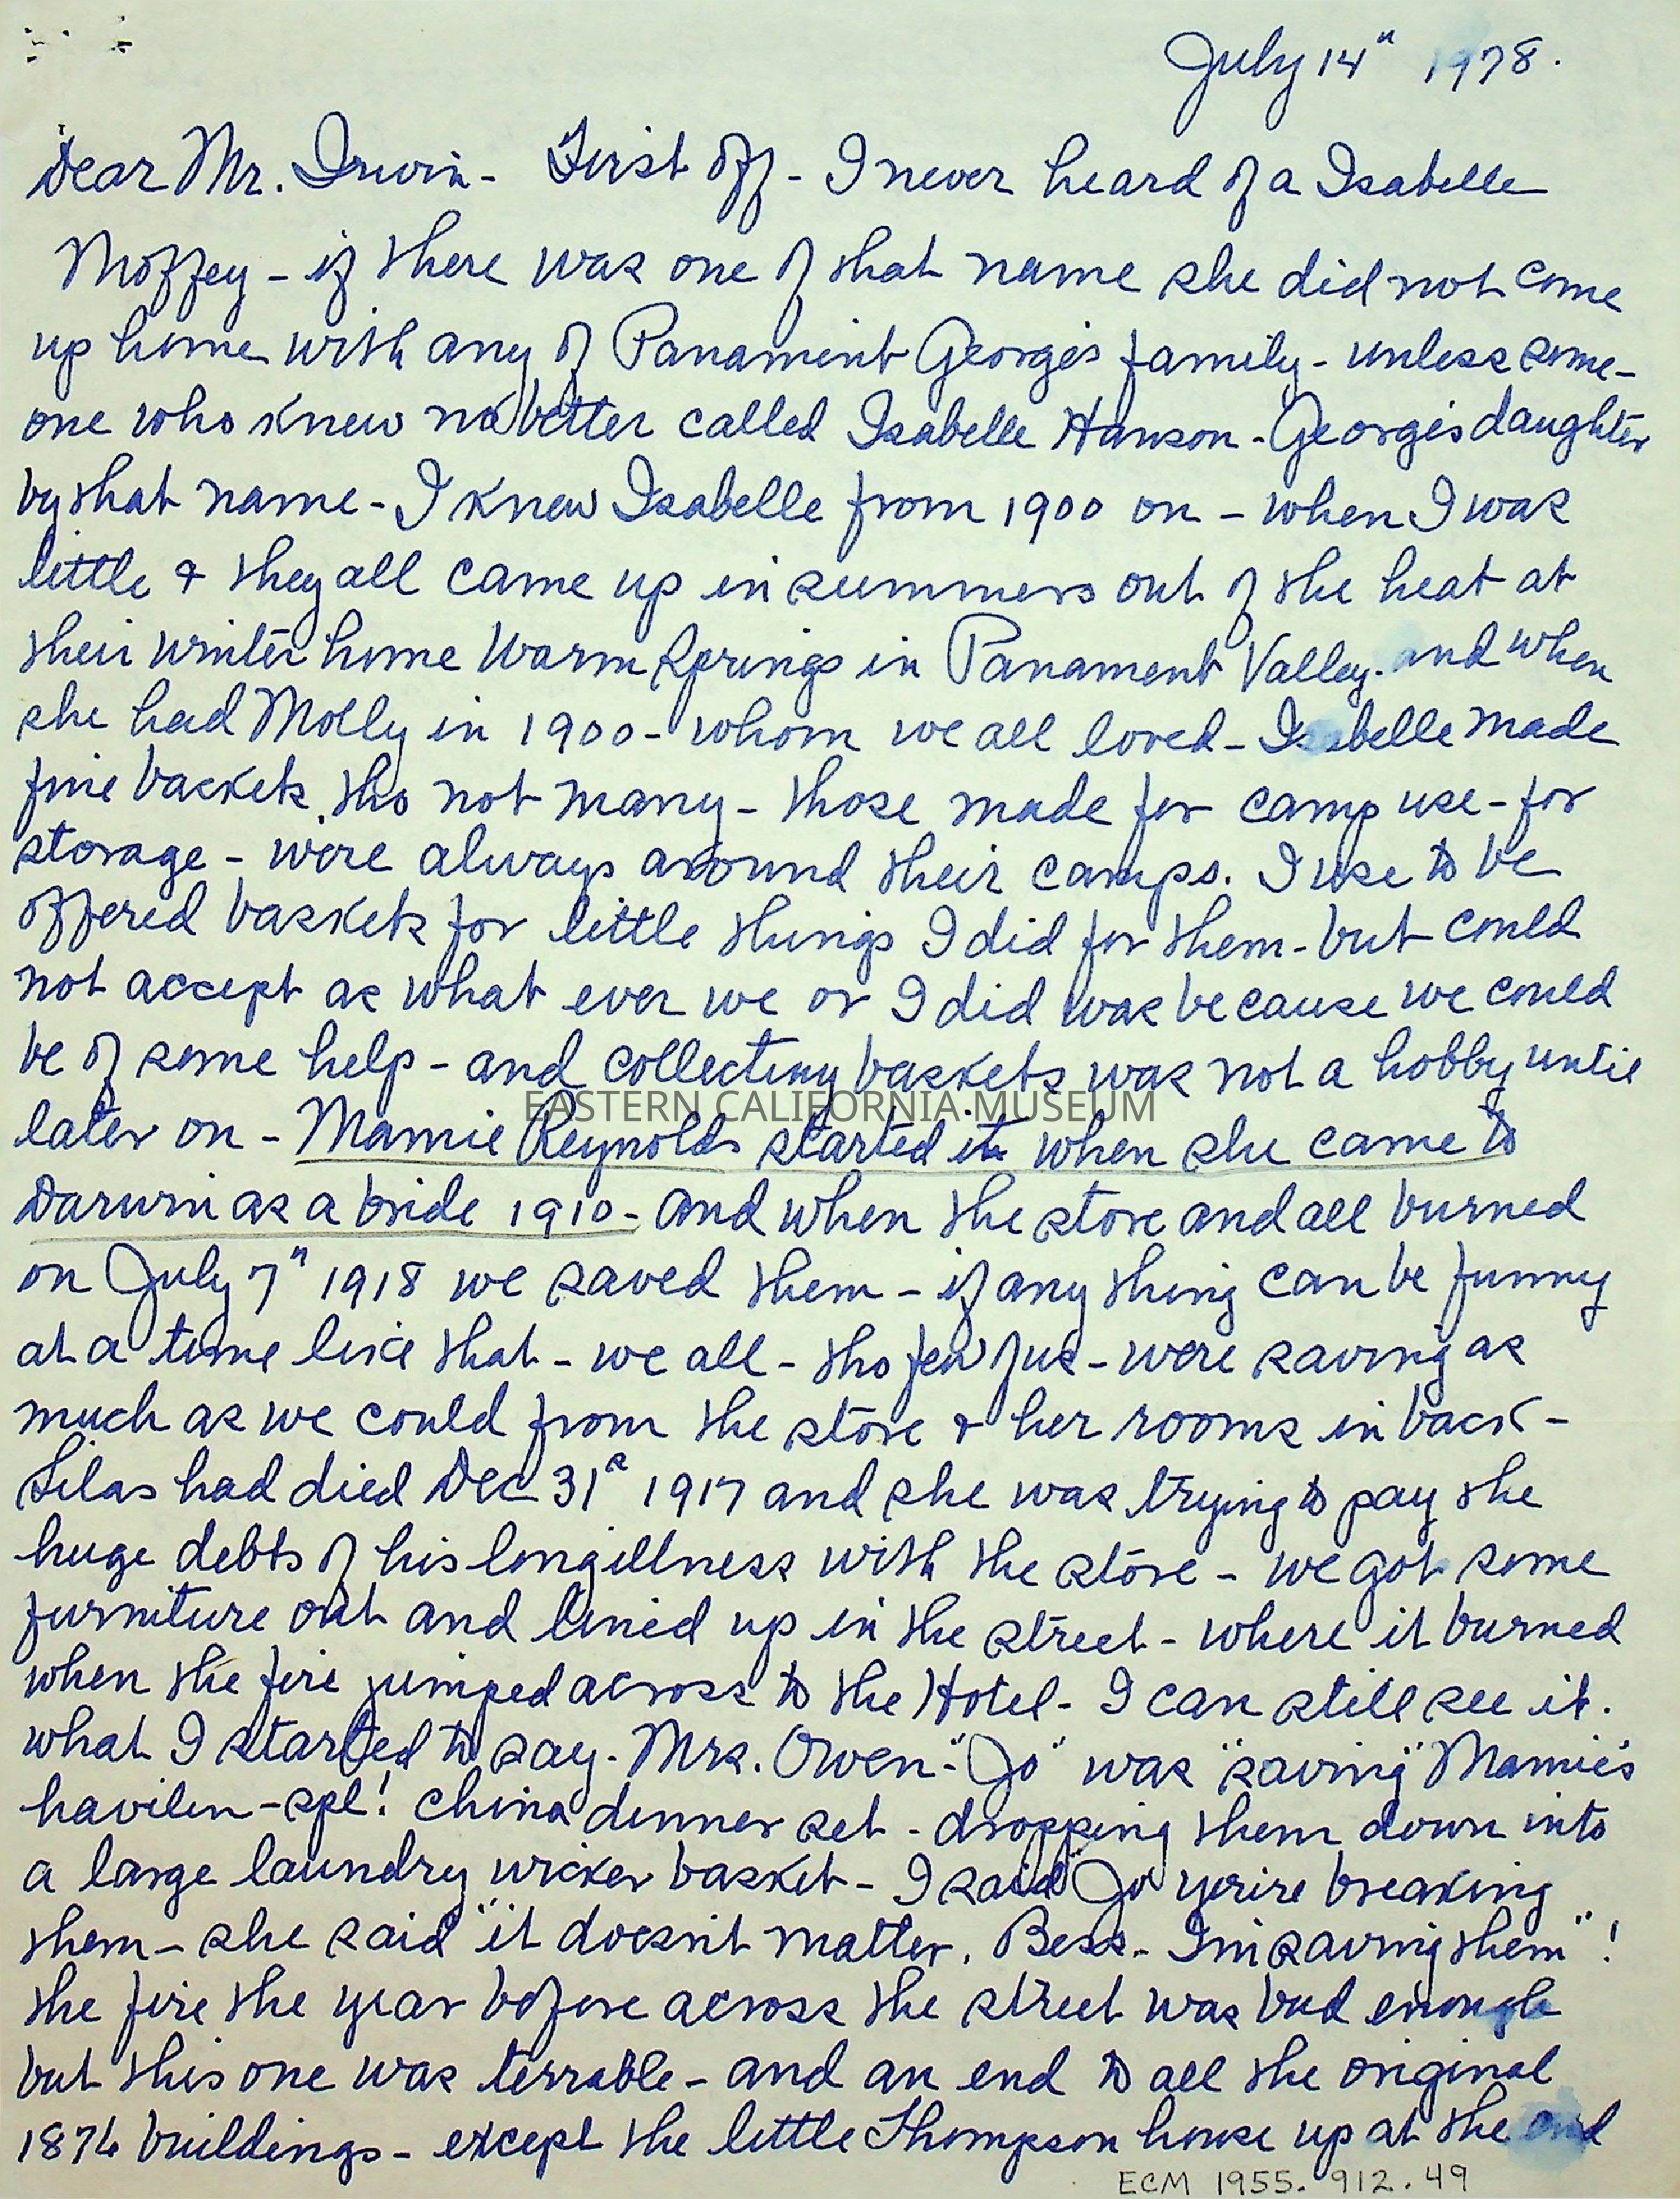 July 14" 1978.
Dear Mr. Irwin - First off - I never heard of a Isabelle
Moffey - if there was one of that name she did not come
up home with any of Panamint George's family - unless some-
one who knew no better called Isabelle Hanson - George's daughter
by that name - I knew Isabelle from 1900 on - when I was
little & they all came up in summers out of the heat at
their winter home Warm Springs in Panament Valley. and when
she had Molly in 1900 - whom we all loved - Isabelle made
fine baskets, tho not many - those made for camp use - for
storage - were always around their camps. I use to be
offered baskets for little things I did for them - but could
not accept as what ever we or I did was because we could
be of some help - and collecting baskets was not a hobby until
EASTERN CALIFORNIA MUSEUM
later on - Mamie Reynolds started it when she came to
Darwin as a bride 1910 - and when the store and all burned
on July 7" 1918 we saved them - if any thing can be funny
at a time like that - we all - tho few of us - were saving as
much as we could from the store & her rooms in back -
Silas had died Dec 31" 1917 and she was trying to pay the
huge debts of his long illness with the store - we got some
furniture out and lined up in the street - where it burned
when the fire jumped across to the Hotel - I can still see it.
what I started to say - Mrs. Owen - "Jo" was "saving" Mamie's
havilen - spl! china dinner set - dropping them down into
a large laundry wicker basket - I said "Jo you're breaking
them - she said "it doesn't matter, Bess - I'm saving them"!
the fire the year before across the street was bad enough
but this one was terrable - and an end to all the original
1876 buildings - except the little Thompson house up at the end
ECM 1955.912.49